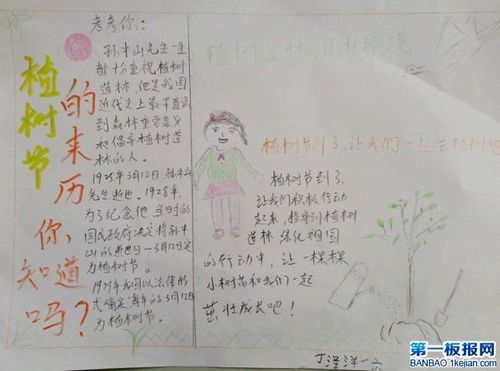 植树节
的来历
你知道
吗？
考考你：
孙中山先生一直
都十分重视植树
造林，他是我国
近代史上最早意识
到森林重要意义
和倡导植树造
林的人。
1925年3月12日，孙中山
先生逝世。1928年，
为了纪念他，当时的
国民政府决定将孙中
山的逝世日—3月12日定
为植树节。
1979年我国以法律形
式确定每年的3月12日
为植树节。
植树造林，保护环境
植树节到了，让我们一起去植树吧
植树节到了，
让我们积极行动
起来，投身到植树
造林绿化祖国
的行动中，让一棵棵
小树苗和我们一起
茁壮成长吧！
丁泽洋 一六
第一板报网
BANBAO.1kejian.com